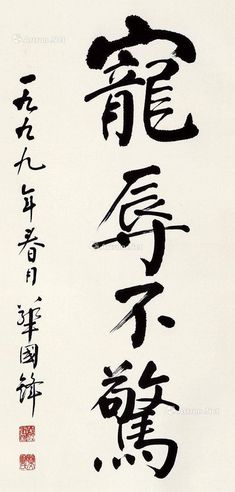 寵辱不驚
一九九九年春月 華國鋒